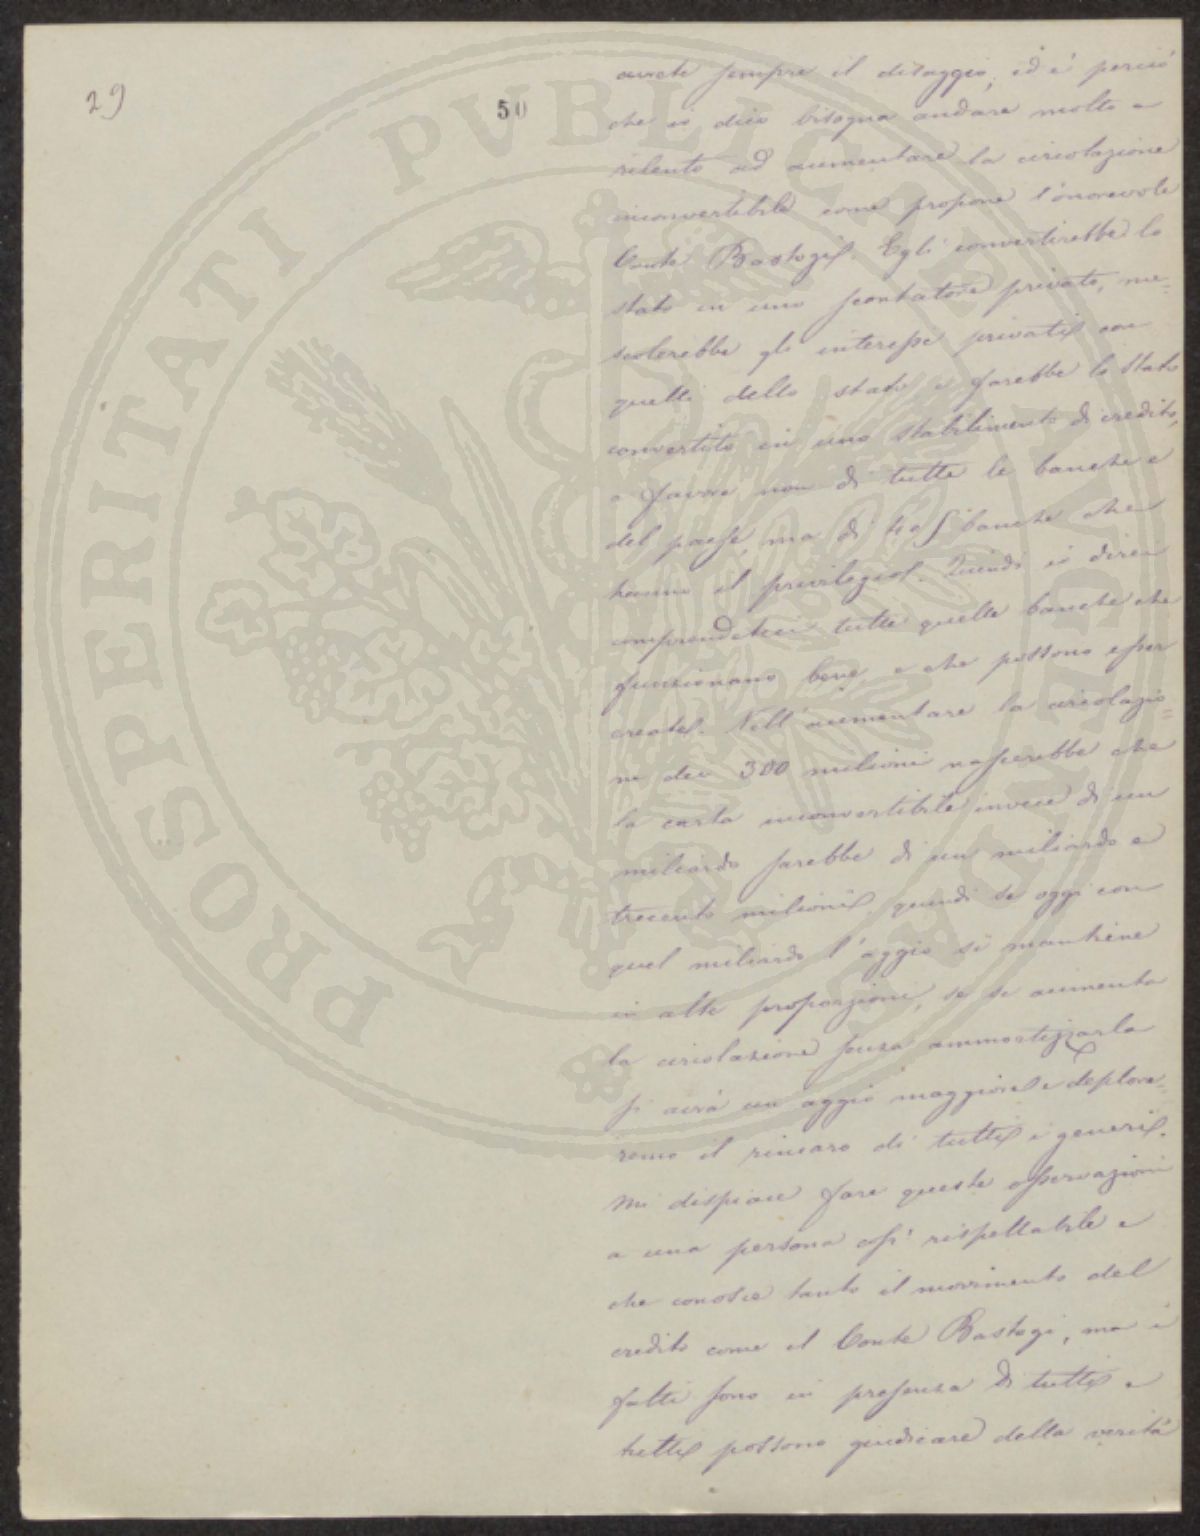 29
50
avrete sempre il disaggio, ed è perciò
che io dico bisogna andare molto a
rilento ad aumentare la circolazione
inconvertibile come propone l'onorevole
Conte Bastogi. Egli convertirebbe lo
stato in uno scontatore privato, me=
scolerebbe gli interessi privati con
quelli dello stato e sarebbe lo Stato
convertito in uno stabilimento di credito,
a favore non di tutte le banche
del paese, ma di 4 o 5 banche che
hanno il privilegio. Quindi io direi
tutte quelle banche che
funzionano bene e che possono esser
create. Nell'aumentare la circolazio=
ne dei 300 milioni nascerebbe che
la carta inconvertibile invece di un
miliardo sarebbe di un miliardo e
trecento milioni, quindi se oggi con
quel miliardo l'aggio si mantiene
in alte proporzioni, se si aumenta
la circolazione senza ammortizzarla
si avrà un aggio maggiore e deplore=
remo il rincaro di tutti i generi.
Mi dispiace fare queste osservazioni
a una persona così rispettabile e
che conosce tanto il movimento del
credito come il Conte Bastogi, ma i
fatti sono in presenza di tutti e
tutti possono giudicare della verità
PROSPERITATI PVBLICAE AVGENDAE